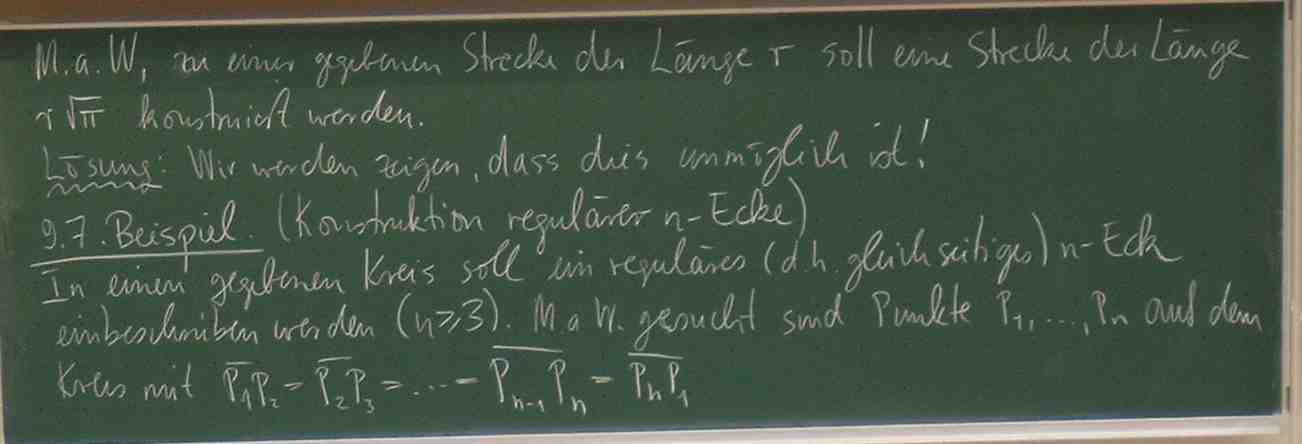 M.a.W, zu einer gegebenen Strecke der Länge r soll eine Strecke der Länge
r√π konstruiert werden.
Lösung: Wir werden zeigen, dass dies unmöglich ist!
9.7. Beispiel. (Konstruktion regulärer n-Ecke)
In einen gegebenen Kreis soll ein reguläres (d.h. gleichseitiges) n-Eck
einbeschrieben werden (n≥3). M.a.W. gesucht sind Punkte P₁, ..., Pₙ auf dem
Kreis mit P̅₁P̅₂ = P̅₂P̅₃ = ... = P̅ₙ₋₁P̅ₙ = P̅ₙP̅₁